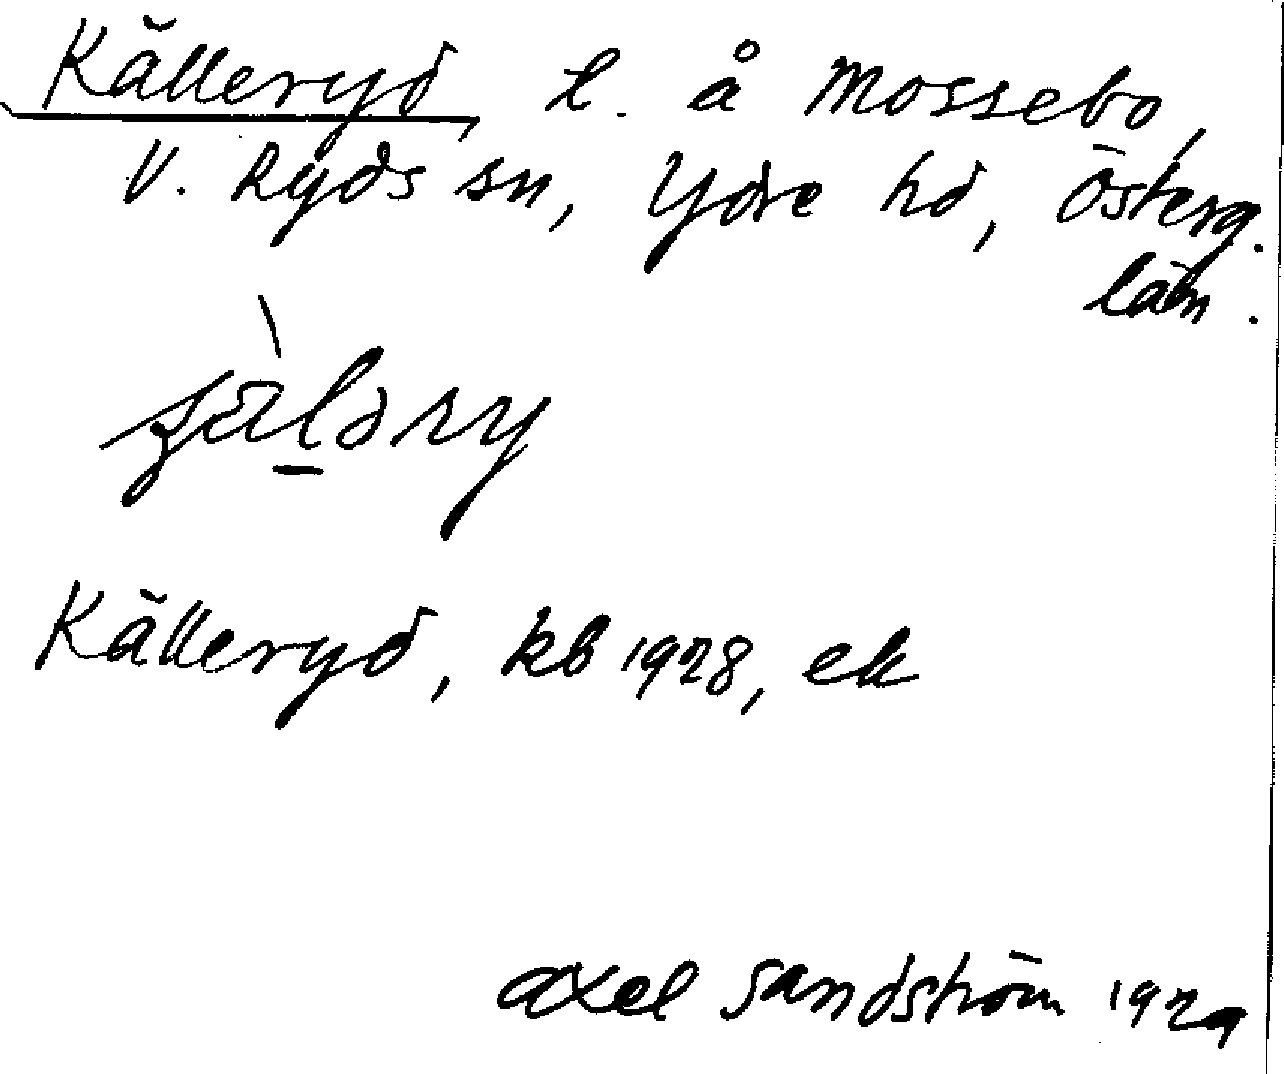 Källeryd, l. å Mossebo,
V. Ryds sn, Ydre hd, Österg.
län.
Källeryd, kb 1928, ek
Axel Sandström 1929